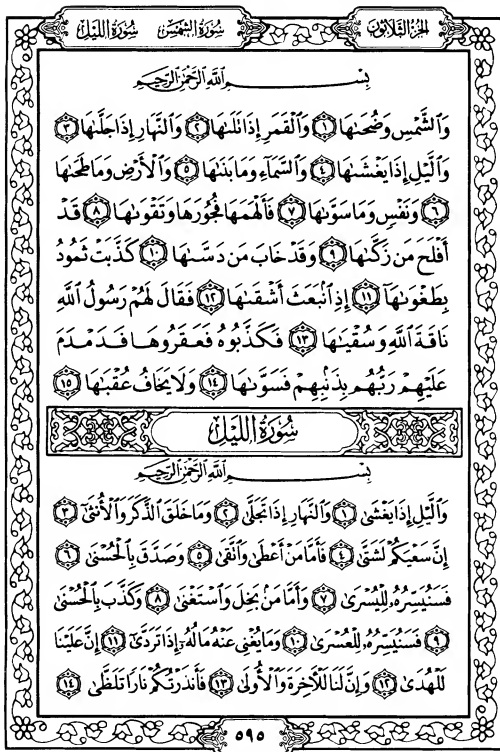 الجزء الثلاثون سورة الشمس سورة الليل
بِسْمِ اللَّهِ الرَّحْمَٰنِ الرَّحِيمِ
وَالشَّمْسِ وَضُحَىٰهَا ١ وَالْقَمَرِ إِذَا تَلَىٰهَا ٢ وَالنَّهَارِ إِذَا جَلَّىٰهَا ٣
وَالَّيْلِ إِذَا يَغْشَىٰهَا ٤ وَالسَّمَاءِ وَمَا بَنَىٰهَا ٥ وَالْأَرْضِ وَمَا طَحَىٰهَا
٦ وَنَفْسٍ وَمَا سَوَّىٰهَا ٧ فَأَلْهَمَهَا فُجُورَهَا وَتَقْوَىٰهَا ٨ قَدْ
أَفْلَحَ مَن زَكَّىٰهَا ٩ وَقَدْ خَابَ مَن دَسَّىٰهَا ١٠ كَذَّبَتْ ثَمُودُ
بِطَغْوَىٰهَا ١١ إِذِ انۢبَعَثَ أَشْقَىٰهَا ١٢ فَقَالَ لَهُمْ رَسُولُ اللَّهِ
نَاقَةَ اللَّهِ وَسُقْيَٰهَا ١٣ فَكَذَّبُوهُ فَعَقَرُوهَا فَدَمْدَمَ
عَلَيْهِمْ رَبُّهُم بِذَنۢبِهِمْ فَسَوَّىٰهَا ١٤ وَلَا يَخَافُ عُقْبَٰهَا ١٥
سورة الليل
بِسْمِ اللَّهِ الرَّحْمَٰنِ الرَّحِيمِ
وَالَّيْلِ إِذَا يَغْشَىٰ ١ وَالنَّهَارِ إِذَا تَجَلَّىٰ ٢ وَمَا خَلَقَ الذَّكَرَ وَالْأُنثَىٰ ٣
إِنَّ سَعْيَكُمْ لَشَتَّىٰ ٤ فَأَمَّا مَنْ أَعْطَىٰ وَاتَّقَىٰ ٥ وَصَدَّقَ بِالْحُسْنَىٰ ٦
فَسَنُيَسِّرُهُۥ لِلْيُسْرَىٰ ٧ وَأَمَّا مَنۢ بَخِلَ وَاسْتَغْنَىٰ ٨ وَكَذَّبَ بِالْحُسْنَىٰ
٩ فَسَنُيَسِّرُهُۥ لِلْعُسْرَىٰ ١٠ وَمَا يُغْنِي عَنْهُ مَالُهُۥ إِذَا تَرَدَّىٰ ١١ إِنَّ عَلَيْنَا
لَلْهُدَىٰ ١٢ وَإِنَّ لَنَا لَلْآخِرَةَ وَالْأُولَىٰ ١٣ فَأَنذَرْتُكُمْ نَارًا تَلَظَّىٰ ١٤
٥٩٥